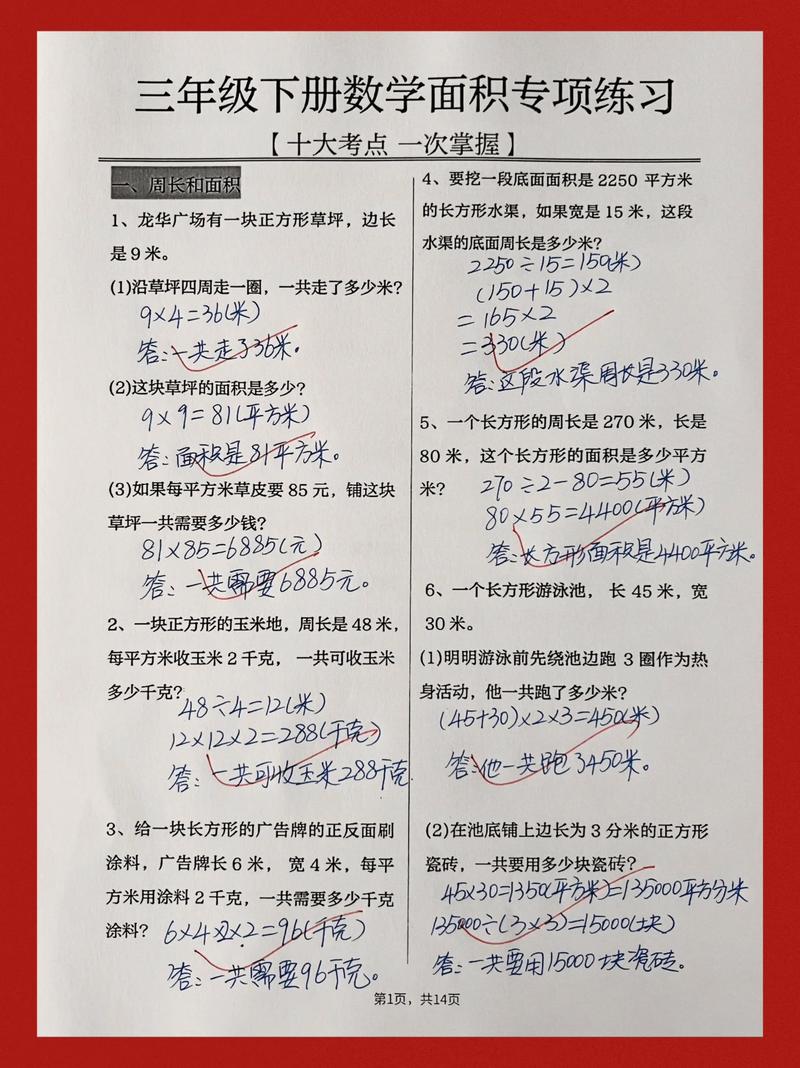 三年级下册数学面积专项练习
【十大考点 一次掌握】
一、周长和面积
1、龙华广场有一块正方形草坪，边长
是9米。
(1)沿草坪四周走一圈，一共走了多少米?
9×4=36(米)
答:一共走了36米。
(2)这块草坪的面积是多少?
9×9=81(平方米)
答:面积是81平方米。
(3)如果每平方米草皮要 85 元，铺这块
草坪一共需要多少钱?
81×85=6885(元)
答:一共需要6885元。
2、一块正方形的玉米地，周长是 48 米，
每平方米收玉米 2 千克， 一共可收玉米
多少千克?
48÷4=12(米)
12×12×2=288(千克)
答:一共可收玉米288千克
3、给一块长方形的广告牌的正反面刷
涂料，广告牌长 6 米， 宽 4 米，每平
方米用涂料 2 千克，一共需要多少千克
涂料? 6×4×2×2=96(千克)
答:一共需要96千克。
4、要挖一段底面面积是 2250 平方米
的长方形水渠，如果宽是 15 米，这段
水渠的底面周长是多少米?
2250÷15=150(米)
(150+15)×2
=165×2
=330(米)
答:这段水渠周长是330米。
5、一个长方形的周长是 270 米，长是
80 米，这个长方形的面积是多少平方
米? 270÷2-80=55(米)
80×55=4400(平方米)
答:长方形面积是4400平方米。
6、一个长方形游泳池， 长 45 米，宽
30 米。
(1)明明游泳前先绕池边跑 3 圈作为热
身活动，他一共跑了多少米?
(45+30)×2×3=450(米)
答:他一共跑3450米。
(2)在池底铺上边长为 3 分米的正方形
瓷砖，一共要用多少块瓷砖?
45×30=1350(平方米)=135000平方分米
135000÷(3×3)=15000(块)
答:一共要用15000块瓷砖。
第1页，共14页